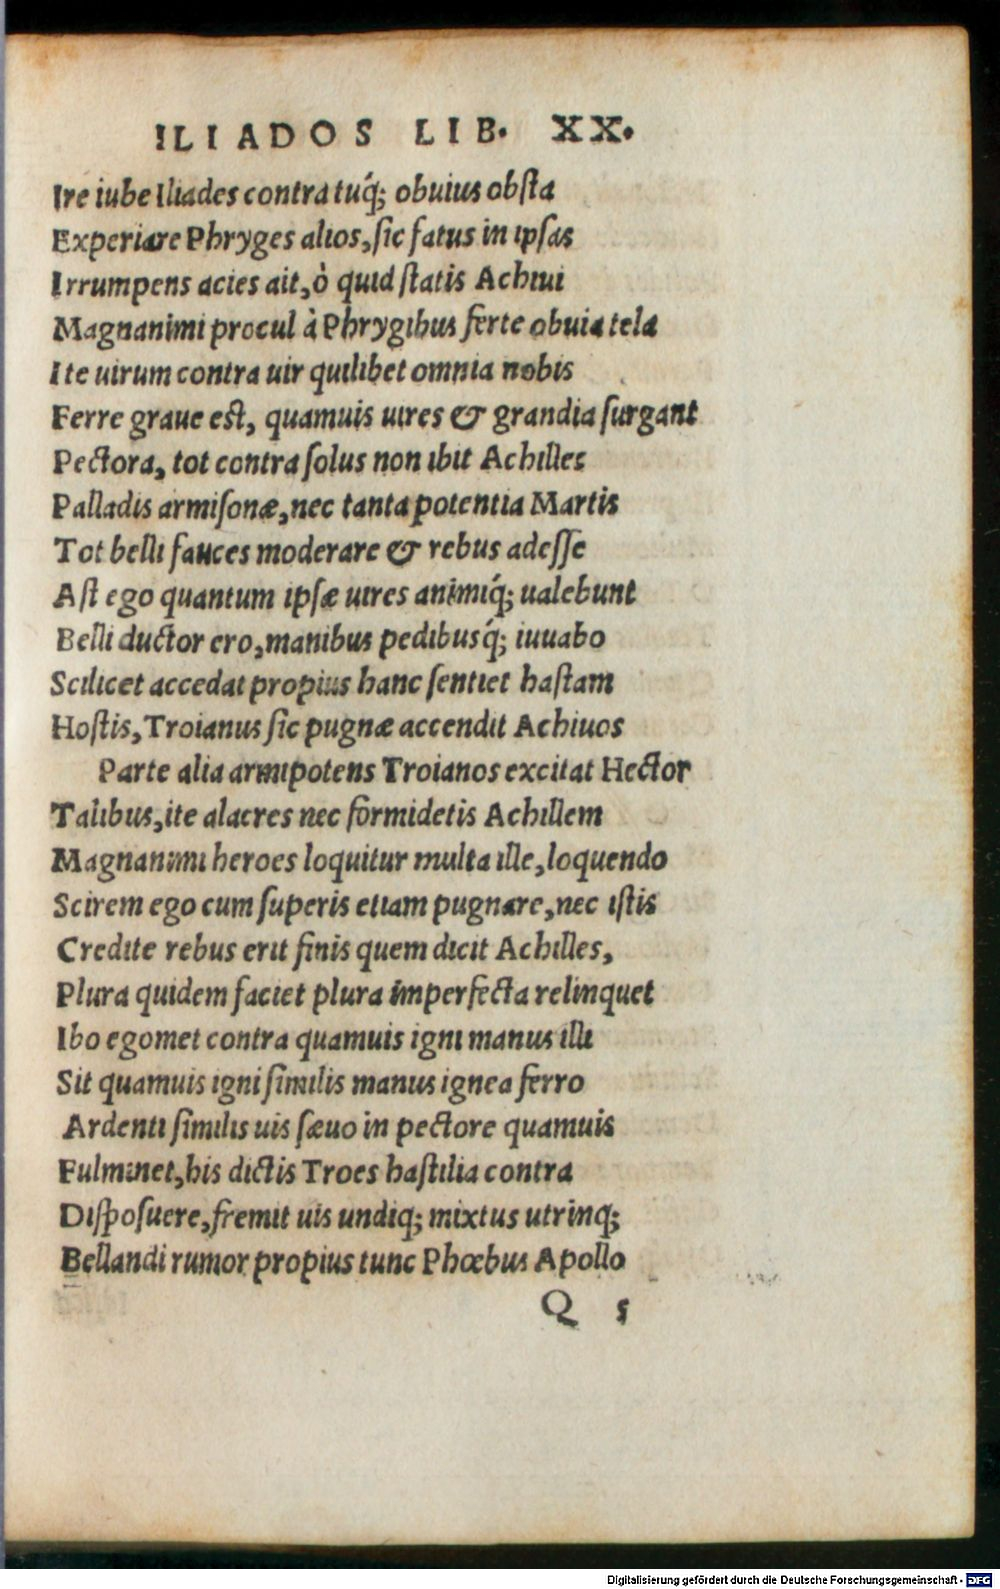 ILIADOS LIB. XX.
Ire iube Iliades contra tuq́; obuius obſta
Experiare Phryges alios, ſic fatus in ipſas
Irrumpens acies ait, ò quid ſtatis Achiui
Magnanimi procul à Phrygibus ferte obuia tela
Ite uirum contra uir quilibet omnia nobis
Ferre graue eſt, quamuis uires & grandia ſurgant
Pectora, tot contra ſolus non ibit Achilles
Palladis armiſonæ, nec tanta potentia Martis
Tot belli fauces moderare & rebus adeſſe
Aſt ego quantum ipſæ uires animiq́; ualebunt
Belli ductor ero, manibus pedibusq́; iuuabo
Scilicet accedat propius hanc ſentiet haſtam
Hoſtis, Troianus ſic pugnæ accendit Achiuos
Parte alia armipotens Troianos excitat Hector
Talibus, ite alacres nec formidetis Achillem
Magnanimi heroes loquitur multa ille, loquendo
Scirem ego cum ſuperis etiam pugnare, nec iſtis
Credite rebus erit finis quem dicit Achilles,
Plura quidem faciet plura imperfecta relinquet
Ibo egomet contra quamuis igni manus illi
Sit quamuis igni ſimilis manus ignea ferro
Ardenti ſimilis uis ſæuo in pectore quamuis
Fulminet, his dictis Troes haſtilia contra
Diſpoſuere, fremit uis undiq; mixtus utrinq;
Bellandi rumor propius tunc Phœbus Apollo
Q 5
Digitalisierung gefördert durch die Deutsche Forschungsgemeinschaft - DFG